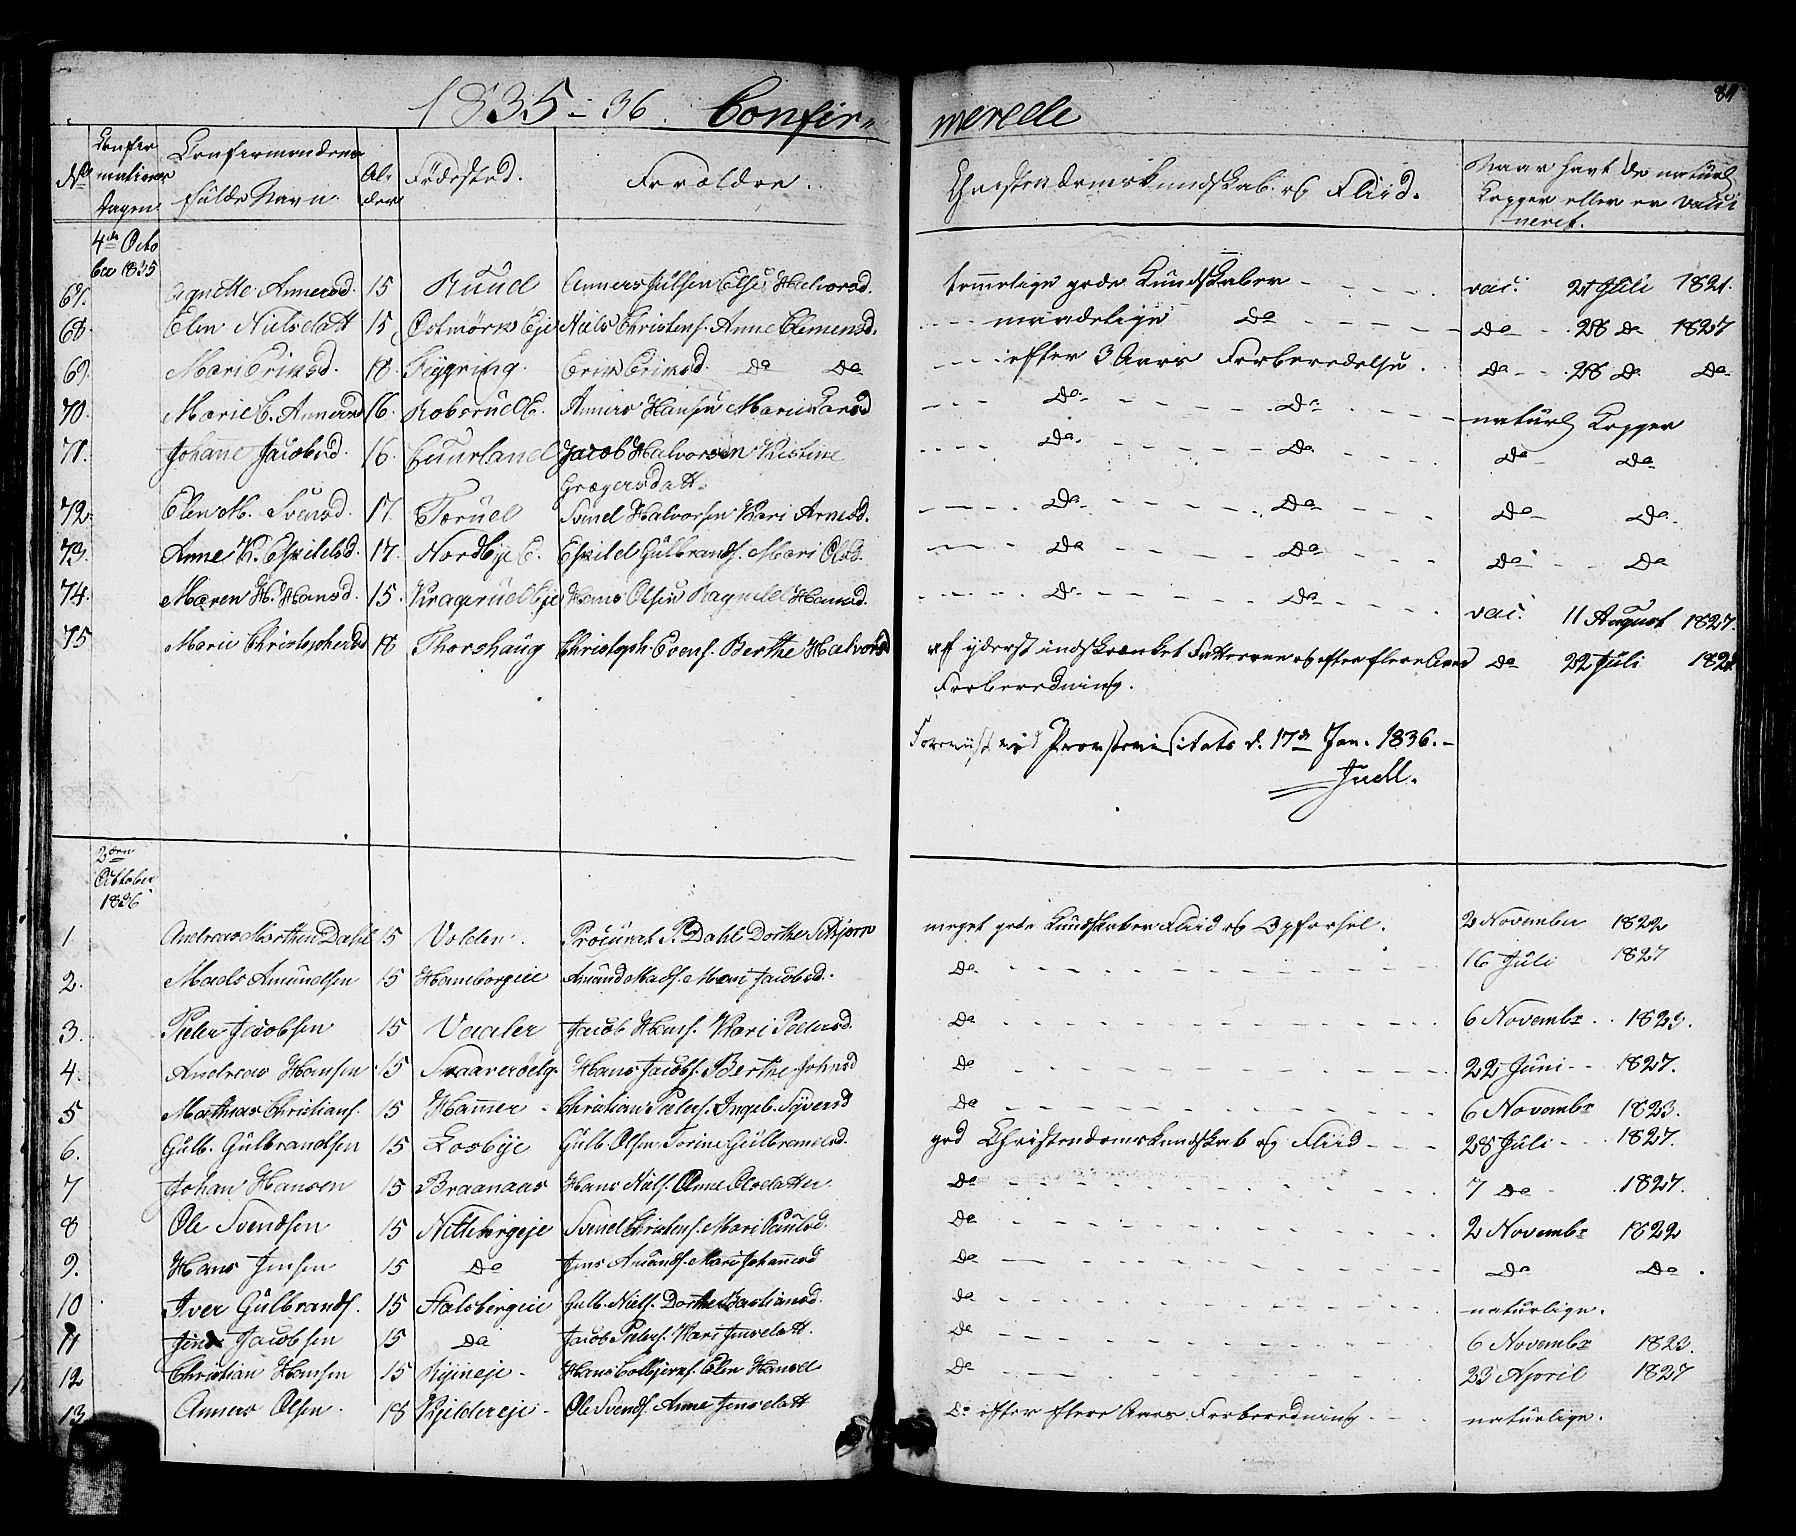 84
1835-36. Confir= merede
No
Confirmations Dagen
Confirmandens fulde Navn.
Alder
Fødested.
Forældre.
Christendomskundskab og Fliid.
Naar havt de naturl. Kopper eller er vacineret.
4de October 1835
67. Agnethe Annersd. 15 Ruud Anners Julsen Else Halvorsd. temmelige gode Kundskaber vac. 21 Juli 1821.
68. Elen Nielsdatt 15 Ostmørk Eje Niels Christens. Anne Clemensd. maadelige do do 28 do 1827
69. Mari Eriksd. 18. Erik Eriksd. do do efter 3 Aars Forberedelse. do 28 do do
70. Marie C. Annersd 16. Kobsrud E. Anners Hansen Marie Larsd do do naturl. Kopper
71. Johane Jacobsd. 16. Cuurland Jacob Halvorsen Kistine Grægersdatt. do do do do
72. Elen M. Svensd. 17. Torud Svend Halvorsen Kari Arnesd. do do do do
73. Anne K. Eskildsd. 17. Nordbye E. Eskild Gulbrands. Mari Olsd. do do do do
74. Maren H. Hansd. 15. Kragerud Eje Hans Olsen Ragnild Hansd. do do vac. 11 August 1827.
75 Marie Christophersd 18 Thorshaug Christoph. Evens. Berthe Halvorsd af yderst indskrænket Fatteevne og efter flere Aars Forberedning. do 22 Juli 182
Foreviist ved Provstevisitats d. 17de Jan. 1836.-
2den October 1836
1 Andreas Morthen Dahl 15 Volden. Procurat. P. Dahl Dorthe meget gode Kundskaber Fliid og Opførsel. 2 November 1822
2. Mads Amundsen 15 Hameborgeie Amund Mads. Mari Jacobsd. do 16 Juli 1827
3. Peder Jacobsen 15 Vaaler Jacob Hans. Kari Pedersd. do 6 Novembr 1823.
4. Andreas Hansen 15 Hans Jacobs. Berthe Johnsd do 22 Juni 1827.
5 Mathias Christians. 15 Hamer Christian Peders. Ingeb. Syversd do 6 Novembr 1823.
6. Gulb. Gulbrandsen 15 Losbye Gulb. Olsen Torine Gulbrandsd. god Christendomskundskab og Fliid 28 Juli 1827.
7 Johan Hansen 15 Braanaas Hans Niels. Anne Olsdatter do 7 do 1827.
8 Ole Svendsen 15 Nittebergeje Svend Christens. Mari Paulsd. do 2 Novembr 1822
9. Hans Jensen 15 do Jens Amunds. Mari Johannesd do do do
10 Iver Gulbrands. 15 Stalsbergeie Gulb. Niels. Dorthe Bastiansd. do naturlige.
11 Jens Jacobsen 15 do Jacob Peders. Kari Jensdatt. do 6 Novembr 1823.
12 Christian Hansen 15 Hans Colbjørns. Elen Hansd do 23 April 1827
13 Anners Olsen 18 Kjeldereje Ole Svends. Anne Jensdatt do efter flere Aars Forberedning naturlige.